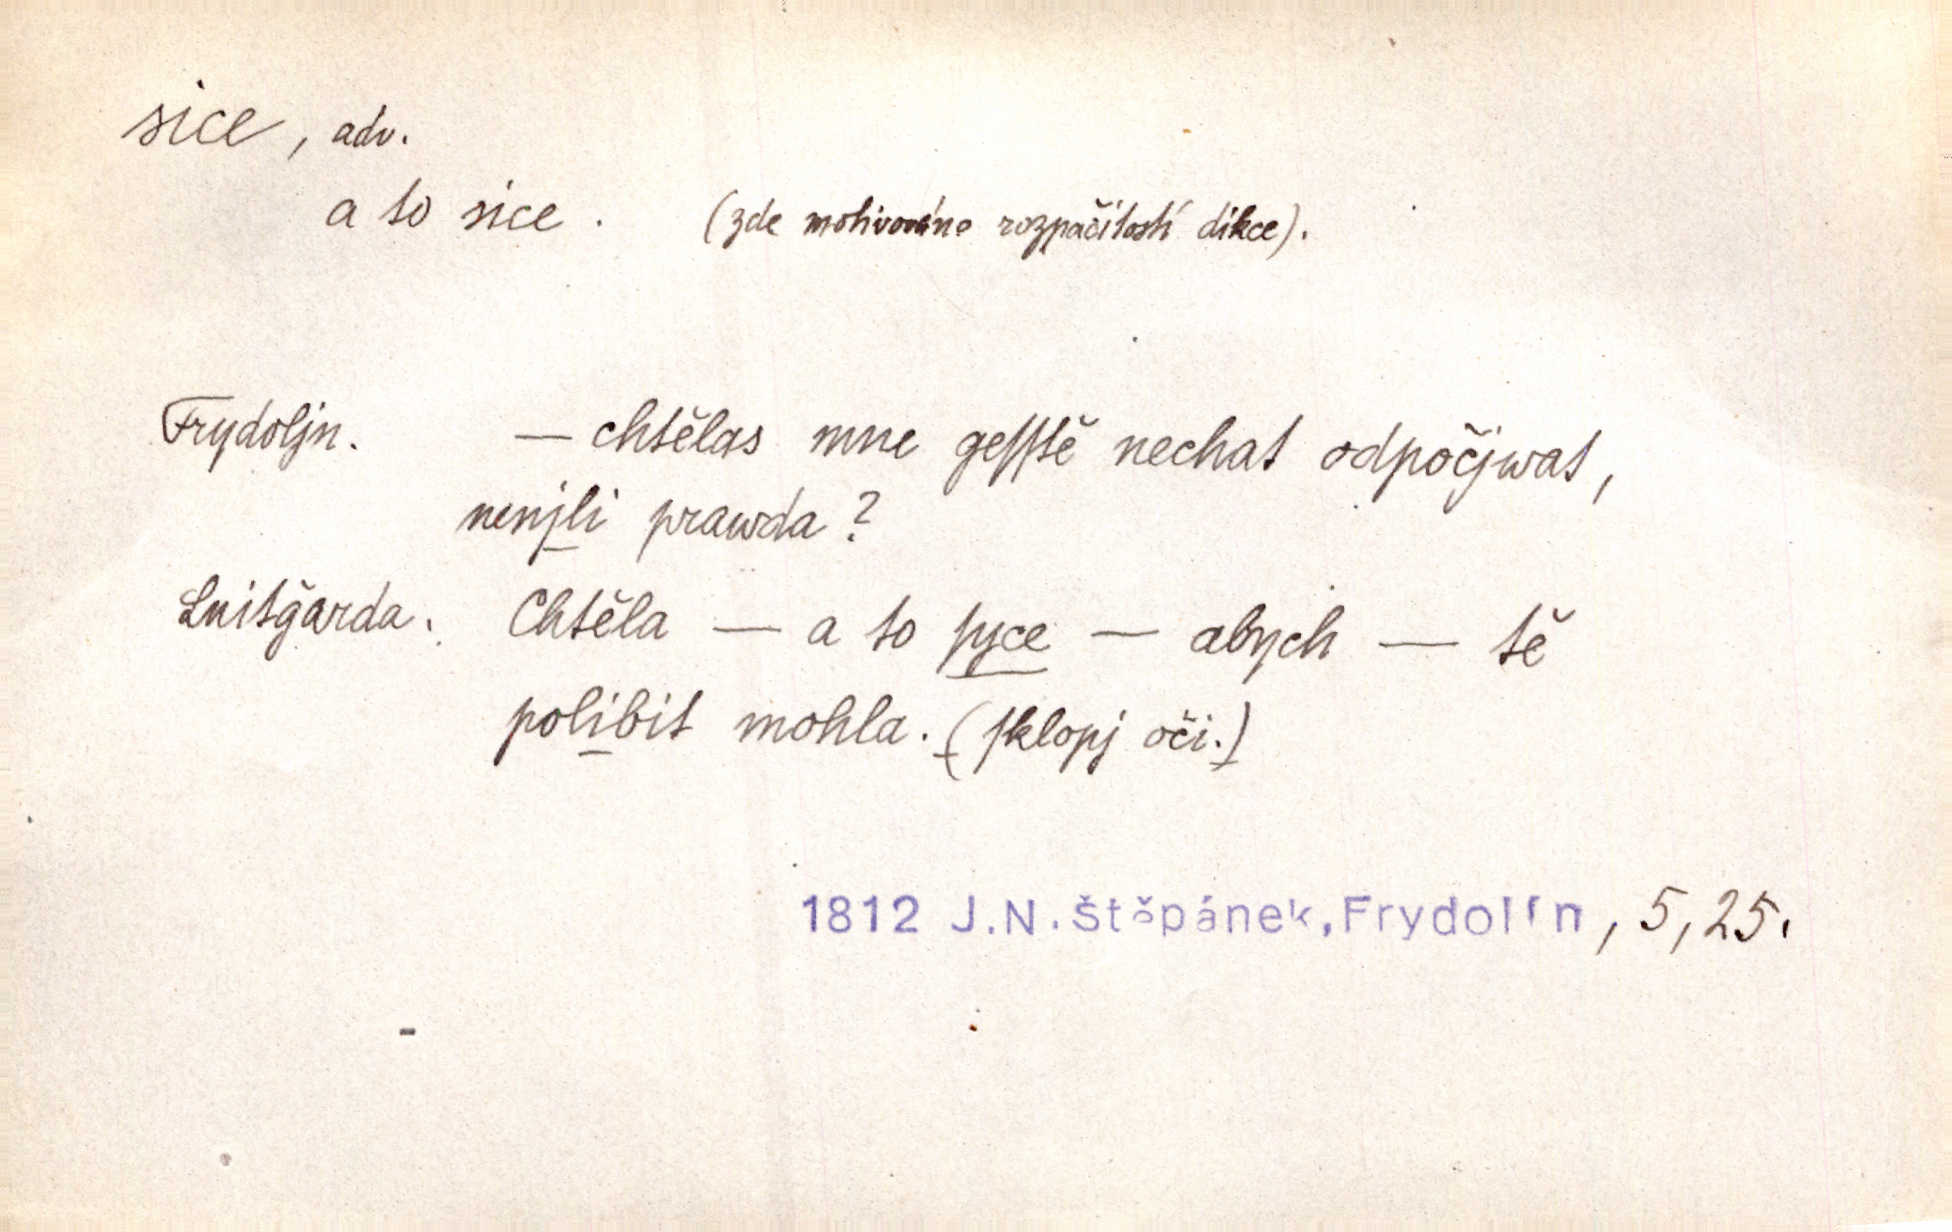 sice, adv.
a to sice. (zde motivováno rozpačitostí dikce).
Frydoljn. — chtělas mne geſſtě nechat odpočjwat,
nenjli prawda?
Luitǧarda. Chtěla — a to ſyce — abych — tě
polibit mohla. (ſklopj oči.)
1812 J.N.Štěpánek,Frydolín, 5,25.